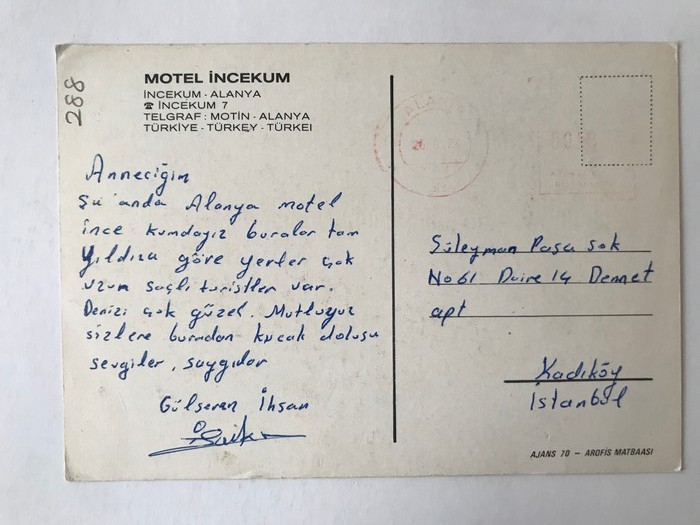 288
MOTEL İNCEKUM
İNCEKUM - ALANYA
☎ İNCEKUM 7
TELGRAF: MOTİN - ALANYA
TÜRKİYE - TÜRKEY - TÜRKEI
Anneciğim
Şu anda Alanya motel
ince kumdayız buralar tam
Yıldıza göre yerler çok
uzun saçlı turistler var.
Denizi çok güzel. Mutluyuz
sizlere buradan kucak dolusu
sevgiler, saygılar
Gülseren İhsan
Süleyman Paşa sok
No 61 Daire 14 Demet
apt
Kadıköy
İstanbul
AJANS 70 - AROFİS MATBAASI